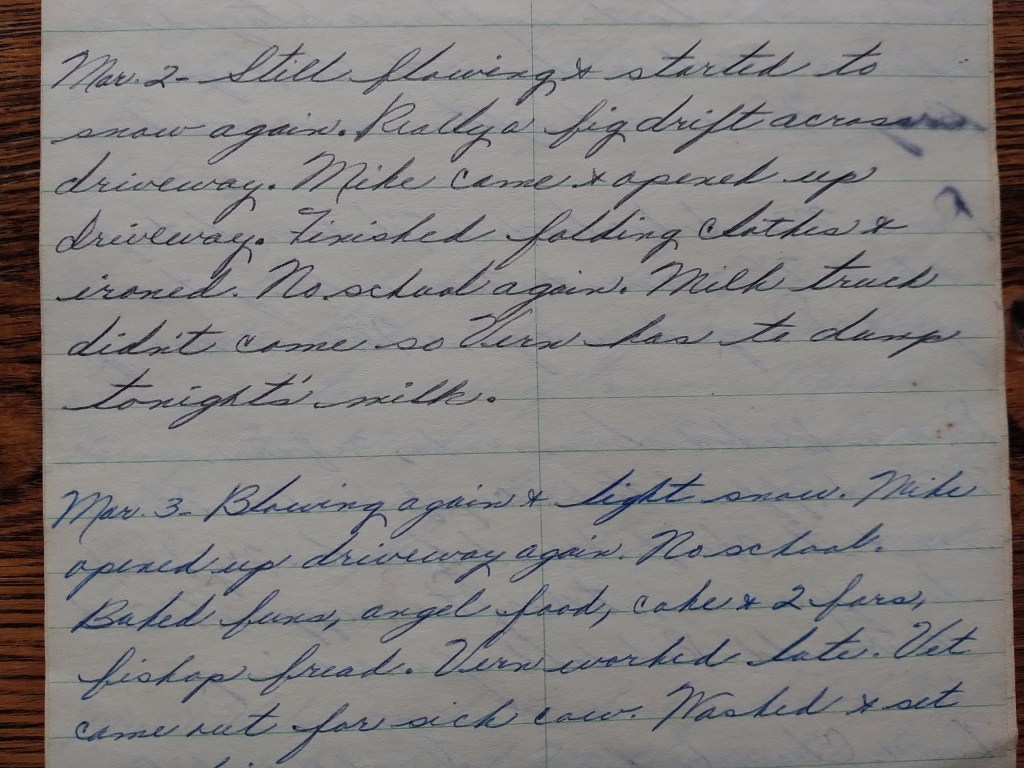 Mar. 2 - Still blowing & started to
snow again. Really a big drift across
driveway. Mike came & opened up
driveway. Finished folding clothes &
ironed. No school again. Milk truck
didn't come so Vern has to dump
tonight's milk.
Mar. 3 - Blowing again & light snow. Mike
opened up driveway again. No school.
Baked buns, angel food, cake & 2 bars,
bishop bread. Vern worked late. Vet
came out for sick cow. Washed & set